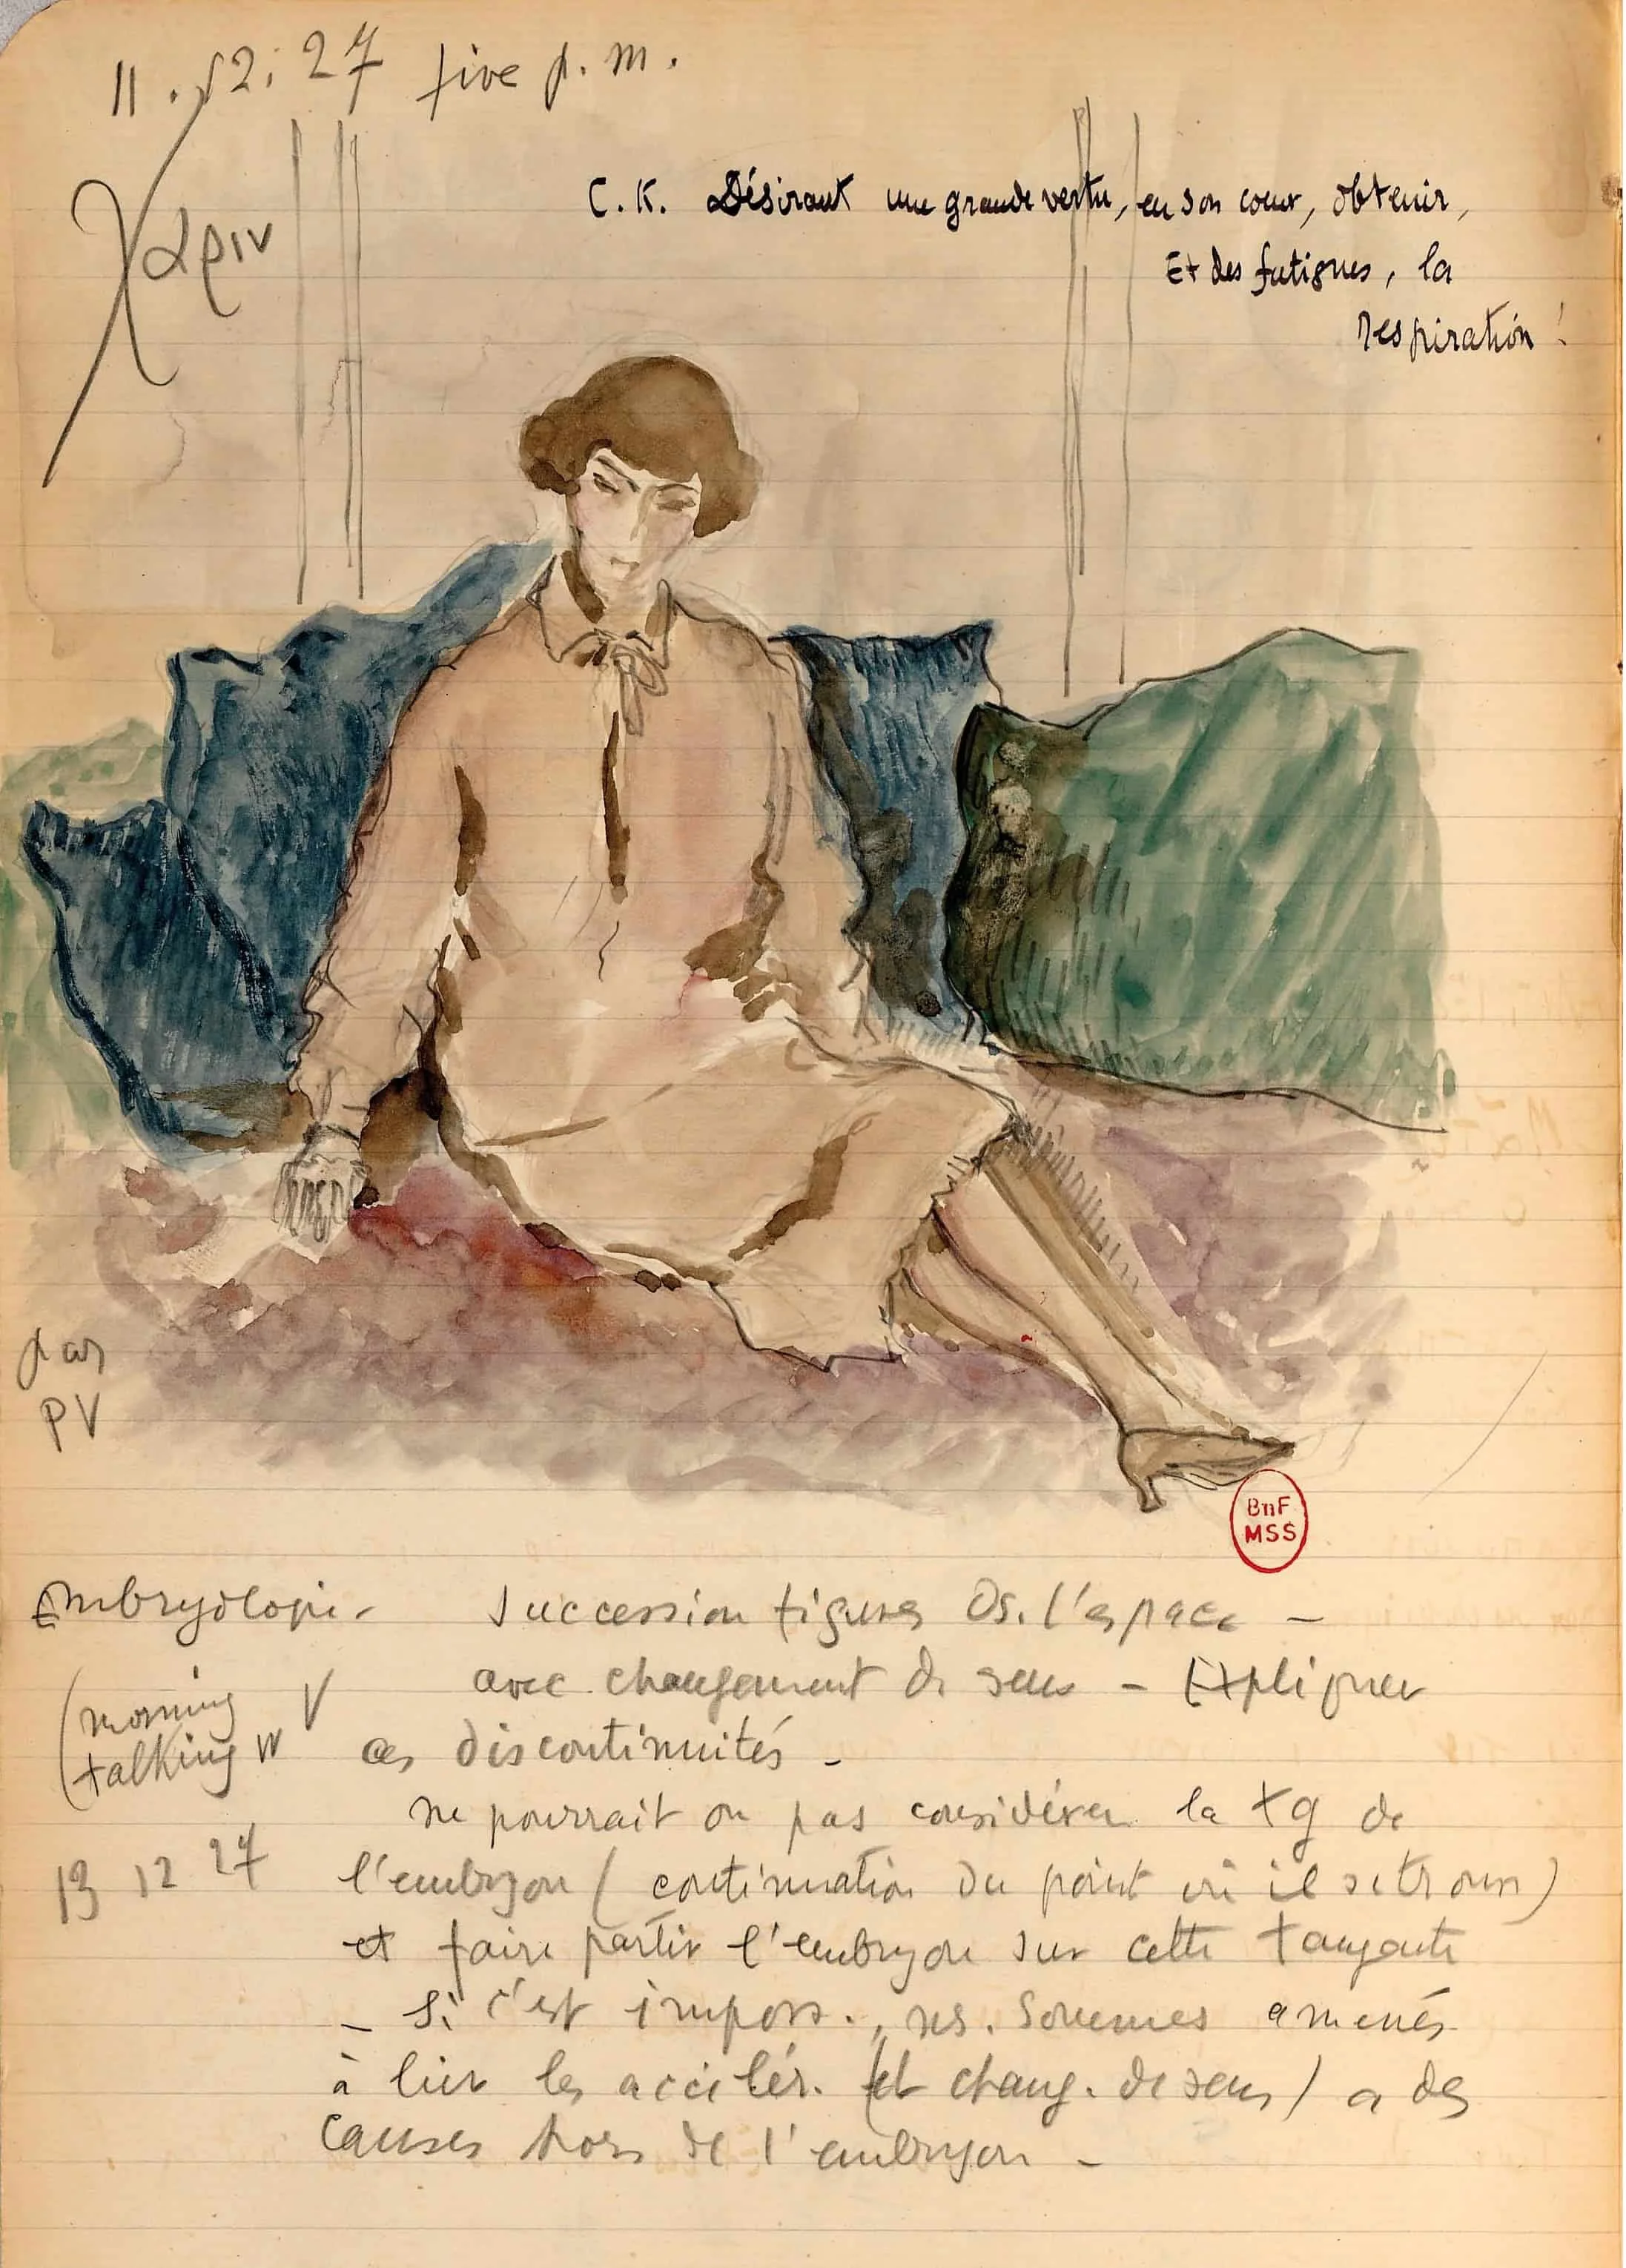 11.12.27 five p.m.
χαριν
C.K. Désirant une grande vertu, en son cœur, obtenir,
Et des fatigues, la
respiration !
par
PV
BnF
MSS
Embryologie
(morning
talking w V
13 12 27
Succession figures ds. l'espace –
avec changement de sens – Expliquer
ces discontinuités –
ne pourrait on pas considérer la tg de
l'embryon (continuation du point où il se trouve)
et faire partir l'embryon sur cette tangente
– Si c'est imposs., ns. sommes amenés
à lier les accélér. (et chang. de sens) a des
causes hors de l'embryon –